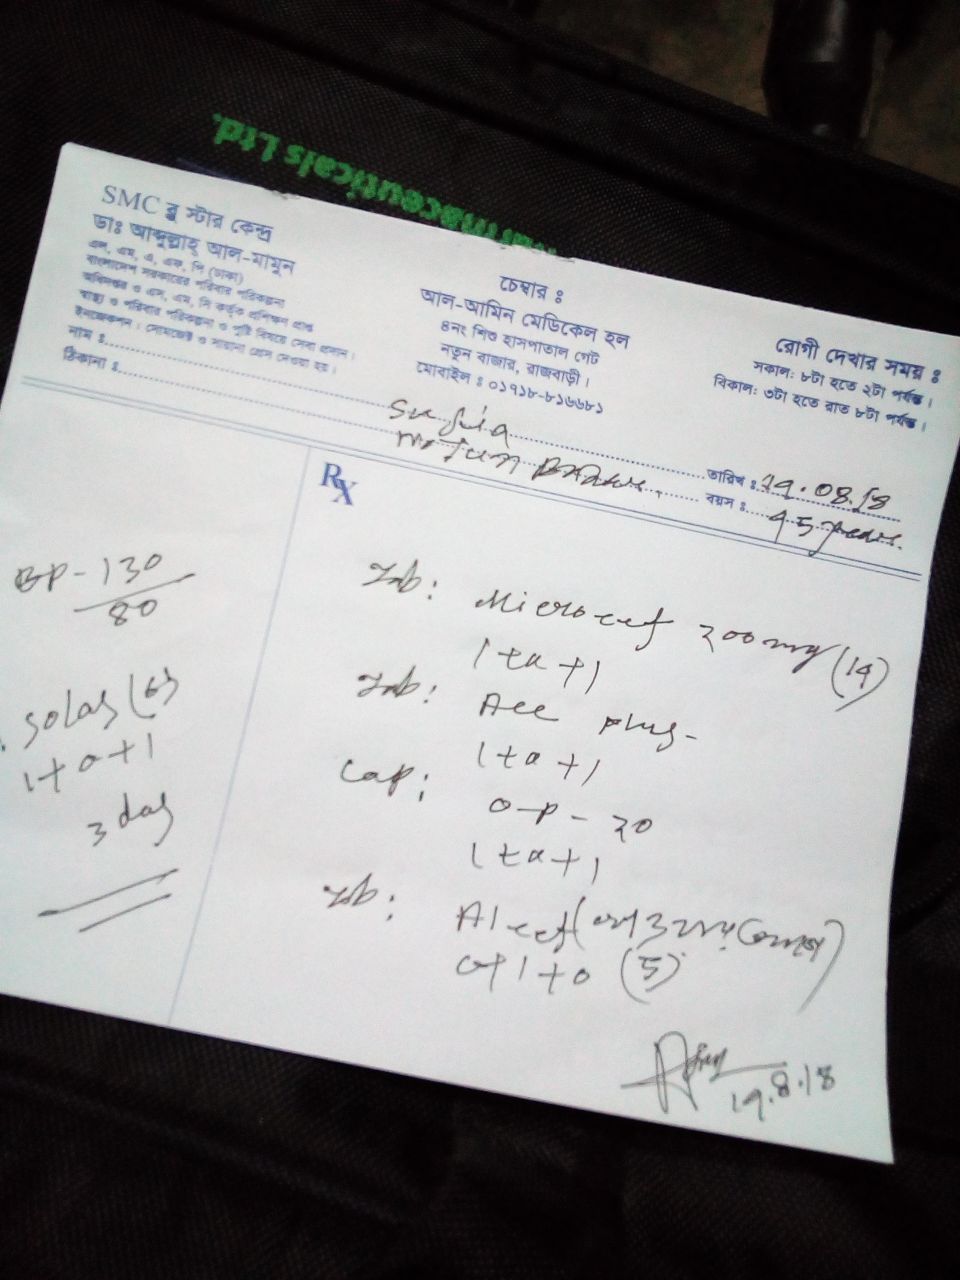 rmaceuticals Ltd.
SMC ব্লু স্টার কেন্দ্র
ডাঃ আব্দুল্লাহ্ আল-মামুন
এল, এম, এ, এফ, পি (ঢাকা)
বাংলাদেশ সরকারের পরিবার পরিকল্পনা
অধিদপ্তর ও এস, এম, সি কর্তৃক প্রশিক্ষণ প্রাপ্ত
স্বাস্থ্য ও পরিবার পরিকল্পনা ও পুষ্টি বিষয়ে সেবা প্রদান।
ইনজেকশন। সোমজেক্ট ও সায়ানা প্রেস দেওয়া হয়।
চেম্বার ঃ
আল-আমিন মেডিকেল হল
৪নং শিশু হাসপাতাল গেট
নতুন বাজার, রাজবাড়ী।
মোবাইল ঃ ০১৭১৮-৮১৬৬৮১
রোগী দেখার সময় ঃ
সকাল: ৮টা হতে ২টা পর্যন্ত।
বিকাল: ৩টা হতে রাত ৮টা পর্যন্ত।
নাম ঃ Sufia তারিখ ঃ 19.08.18
ঠিকানা ঃ Notun বয়স ঃ 45 years.
BP - 130
80
Solas (6)
1+0+1
3 day
RX
Tab: Microcef 200mg (14)
1+0+1
Tab: Ace plus-
1+0+1
Cap: O-P-20
1+0+1
Tab: Alcef
0+1+0 (5)
19.8.18